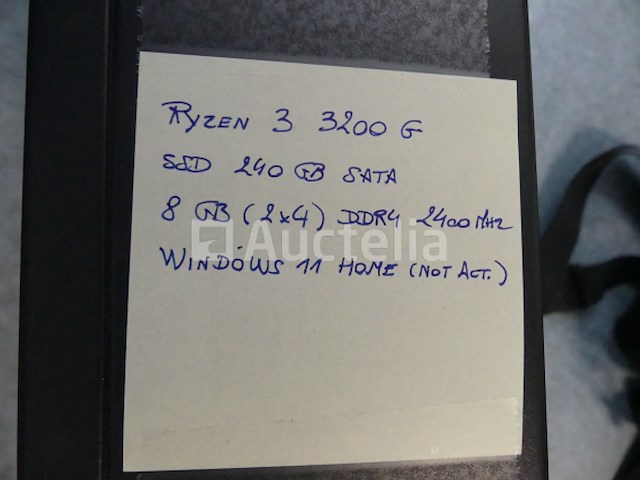 Ryzen 3 3200 G
SSD 240 GB SATA
8 GB (2x4) DDR4 2400 MHz
Auctelia
Windows 11 Home (Not Act.)